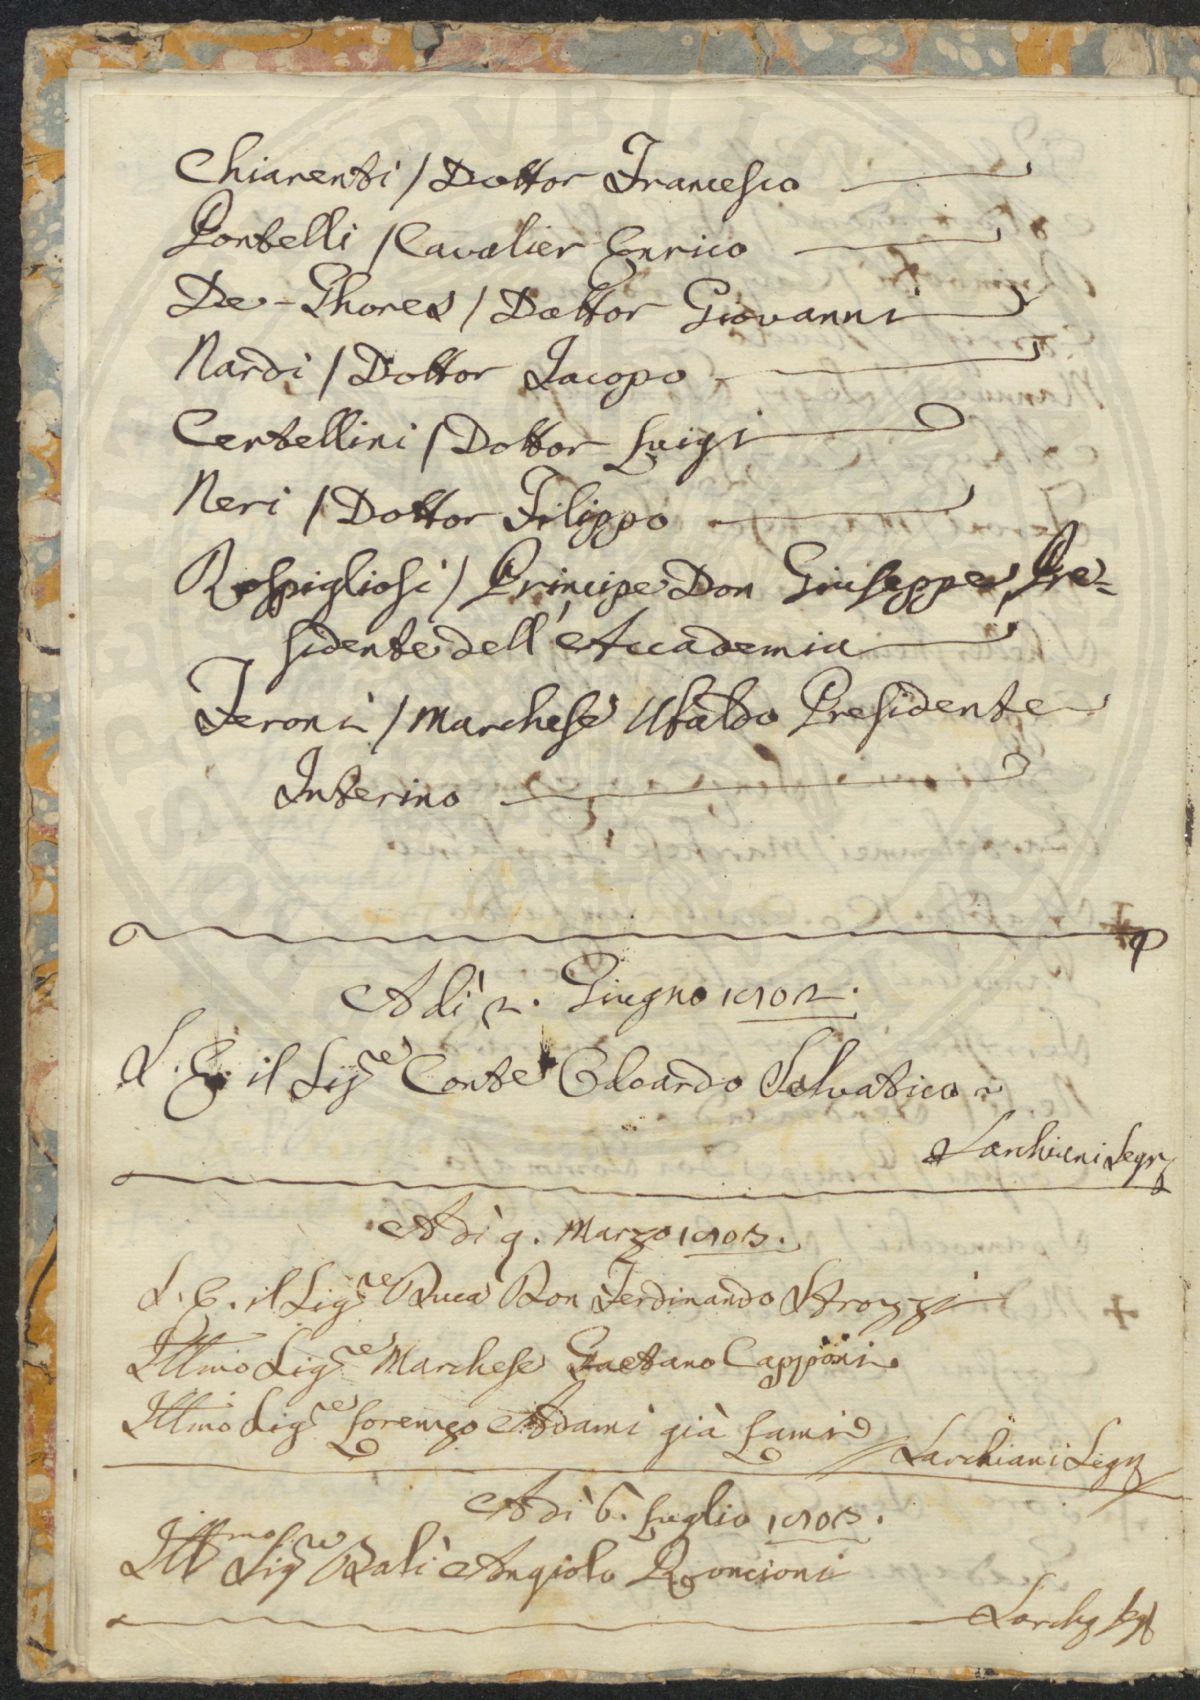 Chiarenti / Dottor Francesco
Pontelli / Cavalier Enrico
De-Ghores / Dottor Giovanni
Nardi / Dottor Jacopo
Certellini / Dottor Luigi
Neri / Dottor Filippo
Rospigliosi / Principe Don Giuseppe Pre-
sidente dell'Accademia
Feroni / Marchese Ubaldo Presidente
Interino
Adì 2. Giugno 1802.
S. E. il Sig.re Conte Odoardo Salvatico
Larchiani Segr
Adì 9. Marzo 1803.
S. E. il Sig.re Duca Don Ferdinando Strozzi
Illmo Sig.re Marchese Gaetano Capponi
Illmo Sig.re Lorenzo Adami già Lami
Larchiani Segr
Adì 6. Luglio 1803.
Ill.mo Sig.re Balì Angiolo Roncioni